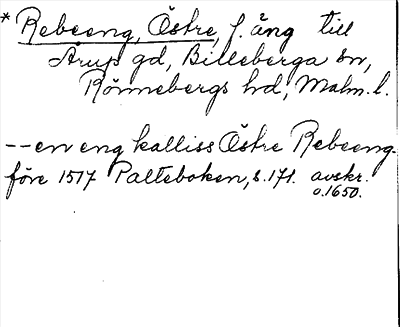 * Rebeeng, Östre, f. äng till
Årup gd, Billeberga sn,
Rönnebergs hd, Malm. l.
--en eng kalliss Östre Rebeeng.
före 1517 Palteboken, s. 171. avskr.
o. 1650.